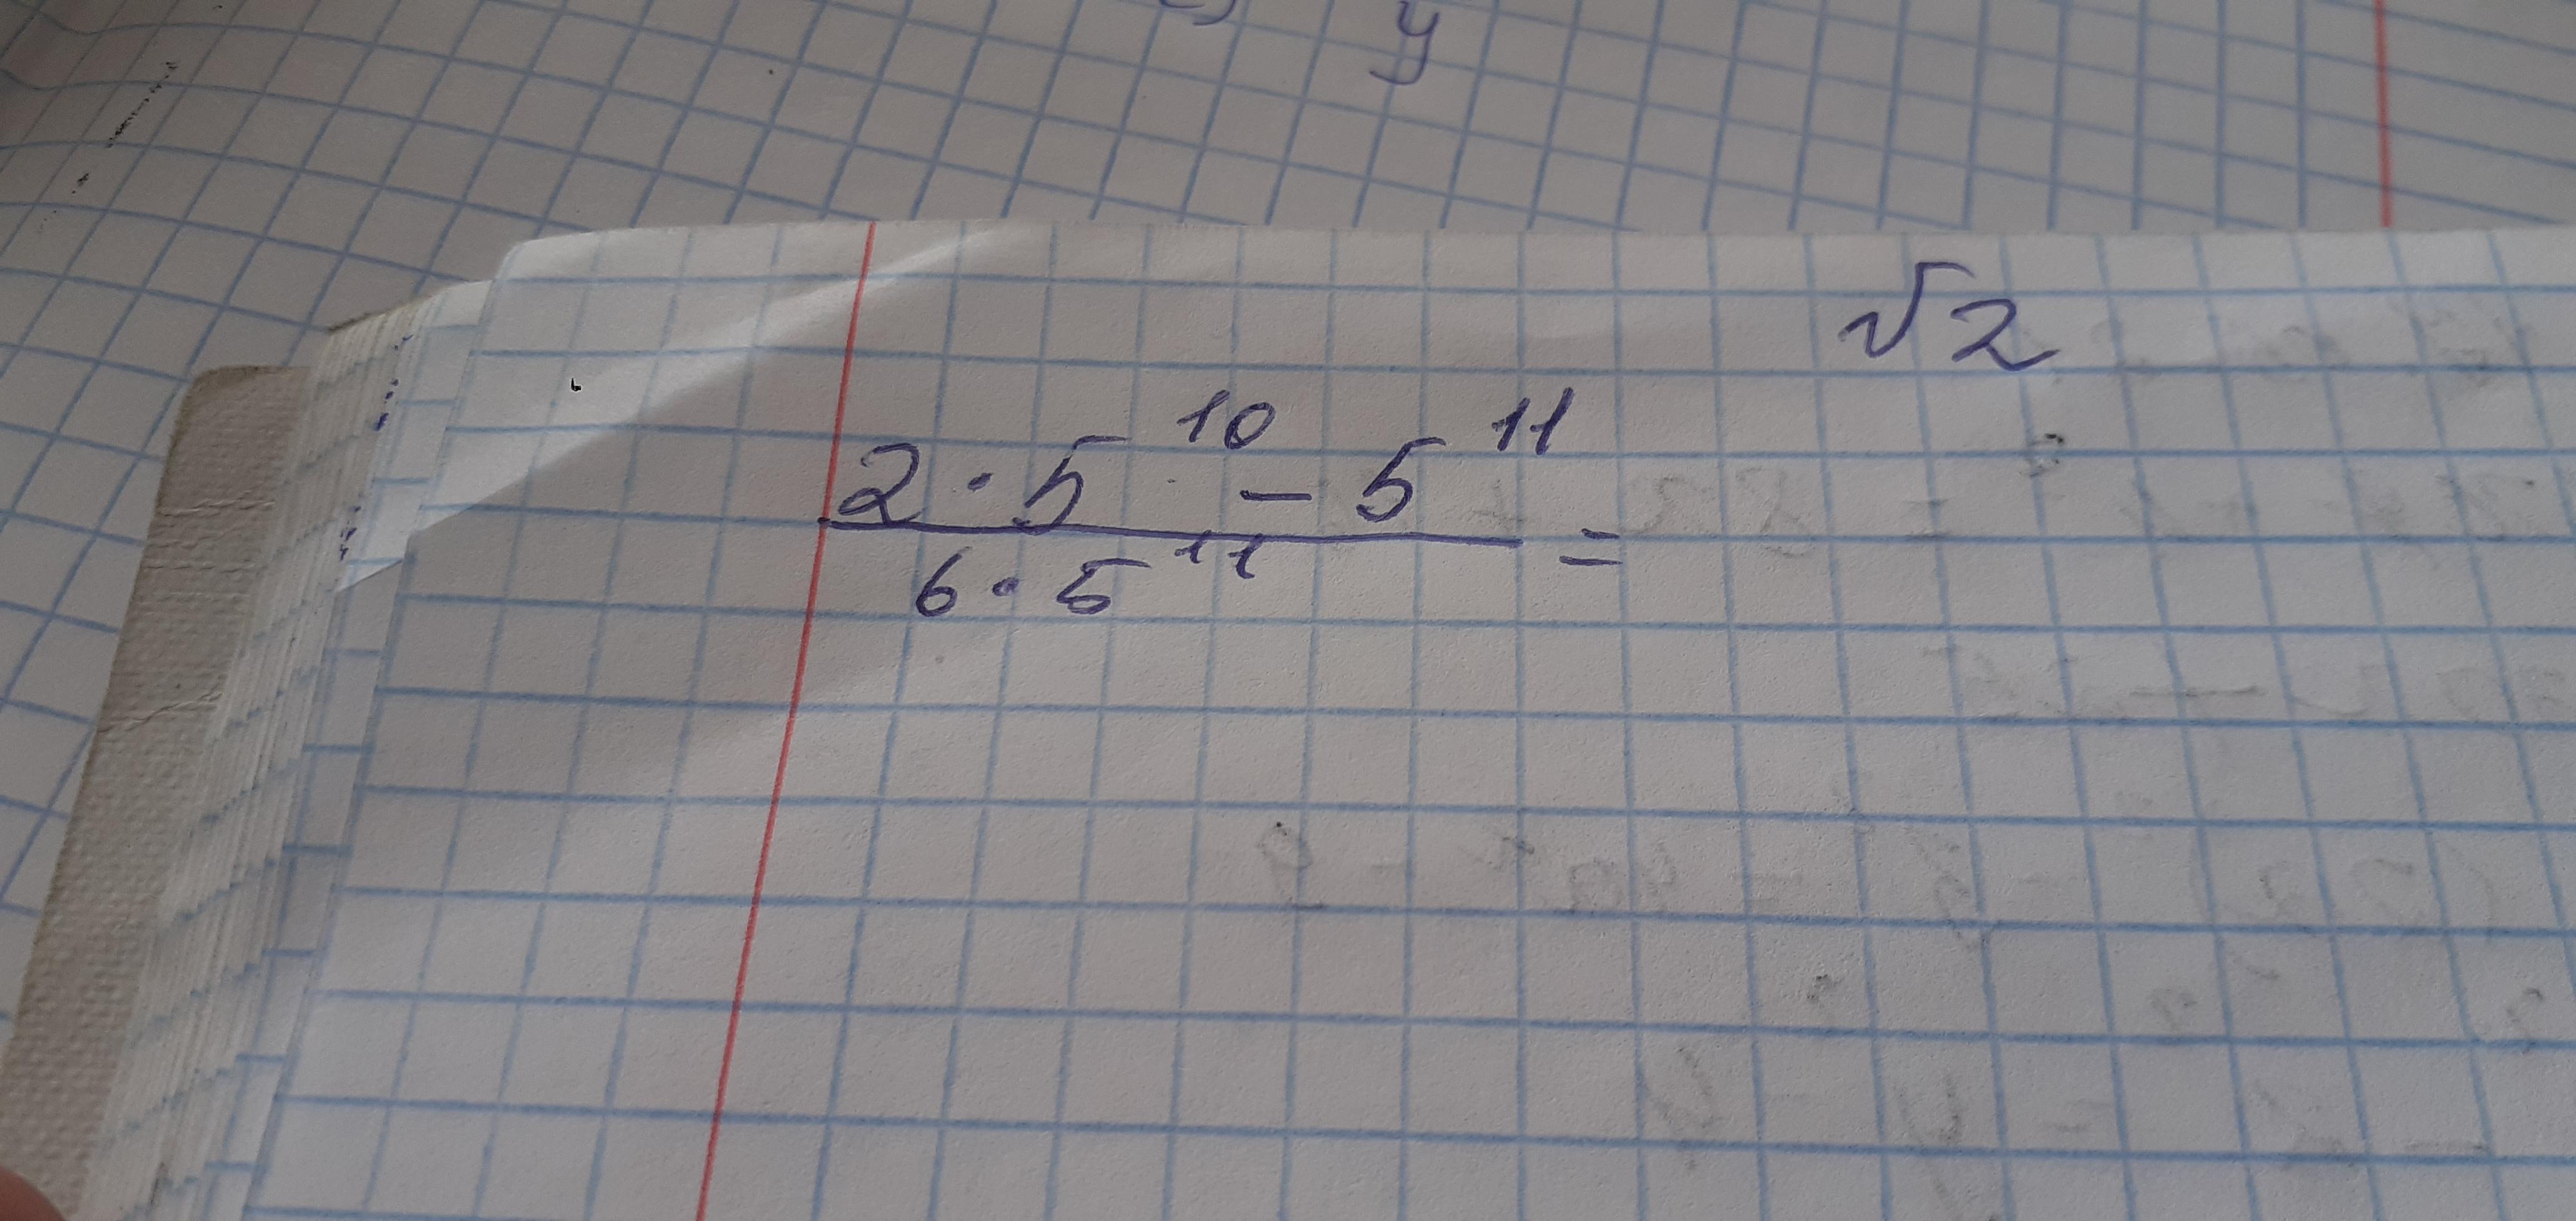 y
√2
2 · 5^10 - 5^11
6 · 5^11 =